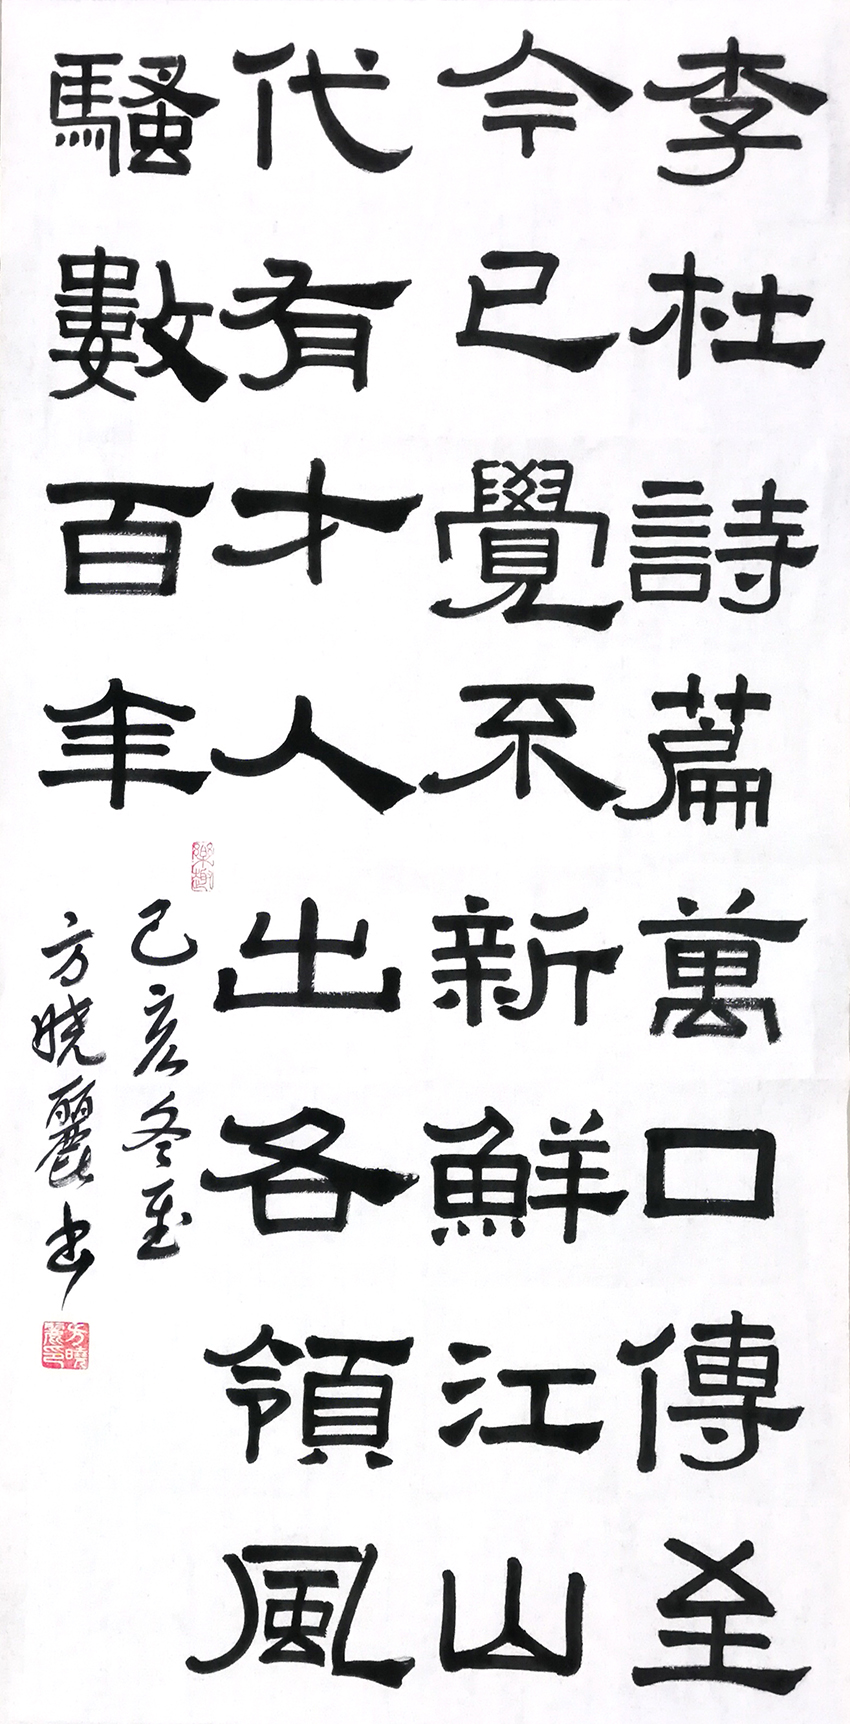 李杜詩篇萬口傳至
今已覺不新鮮江山
代有才人出各領風
騷數百年
己亥冬至
方曉麗书
樂趣
方曉麗印